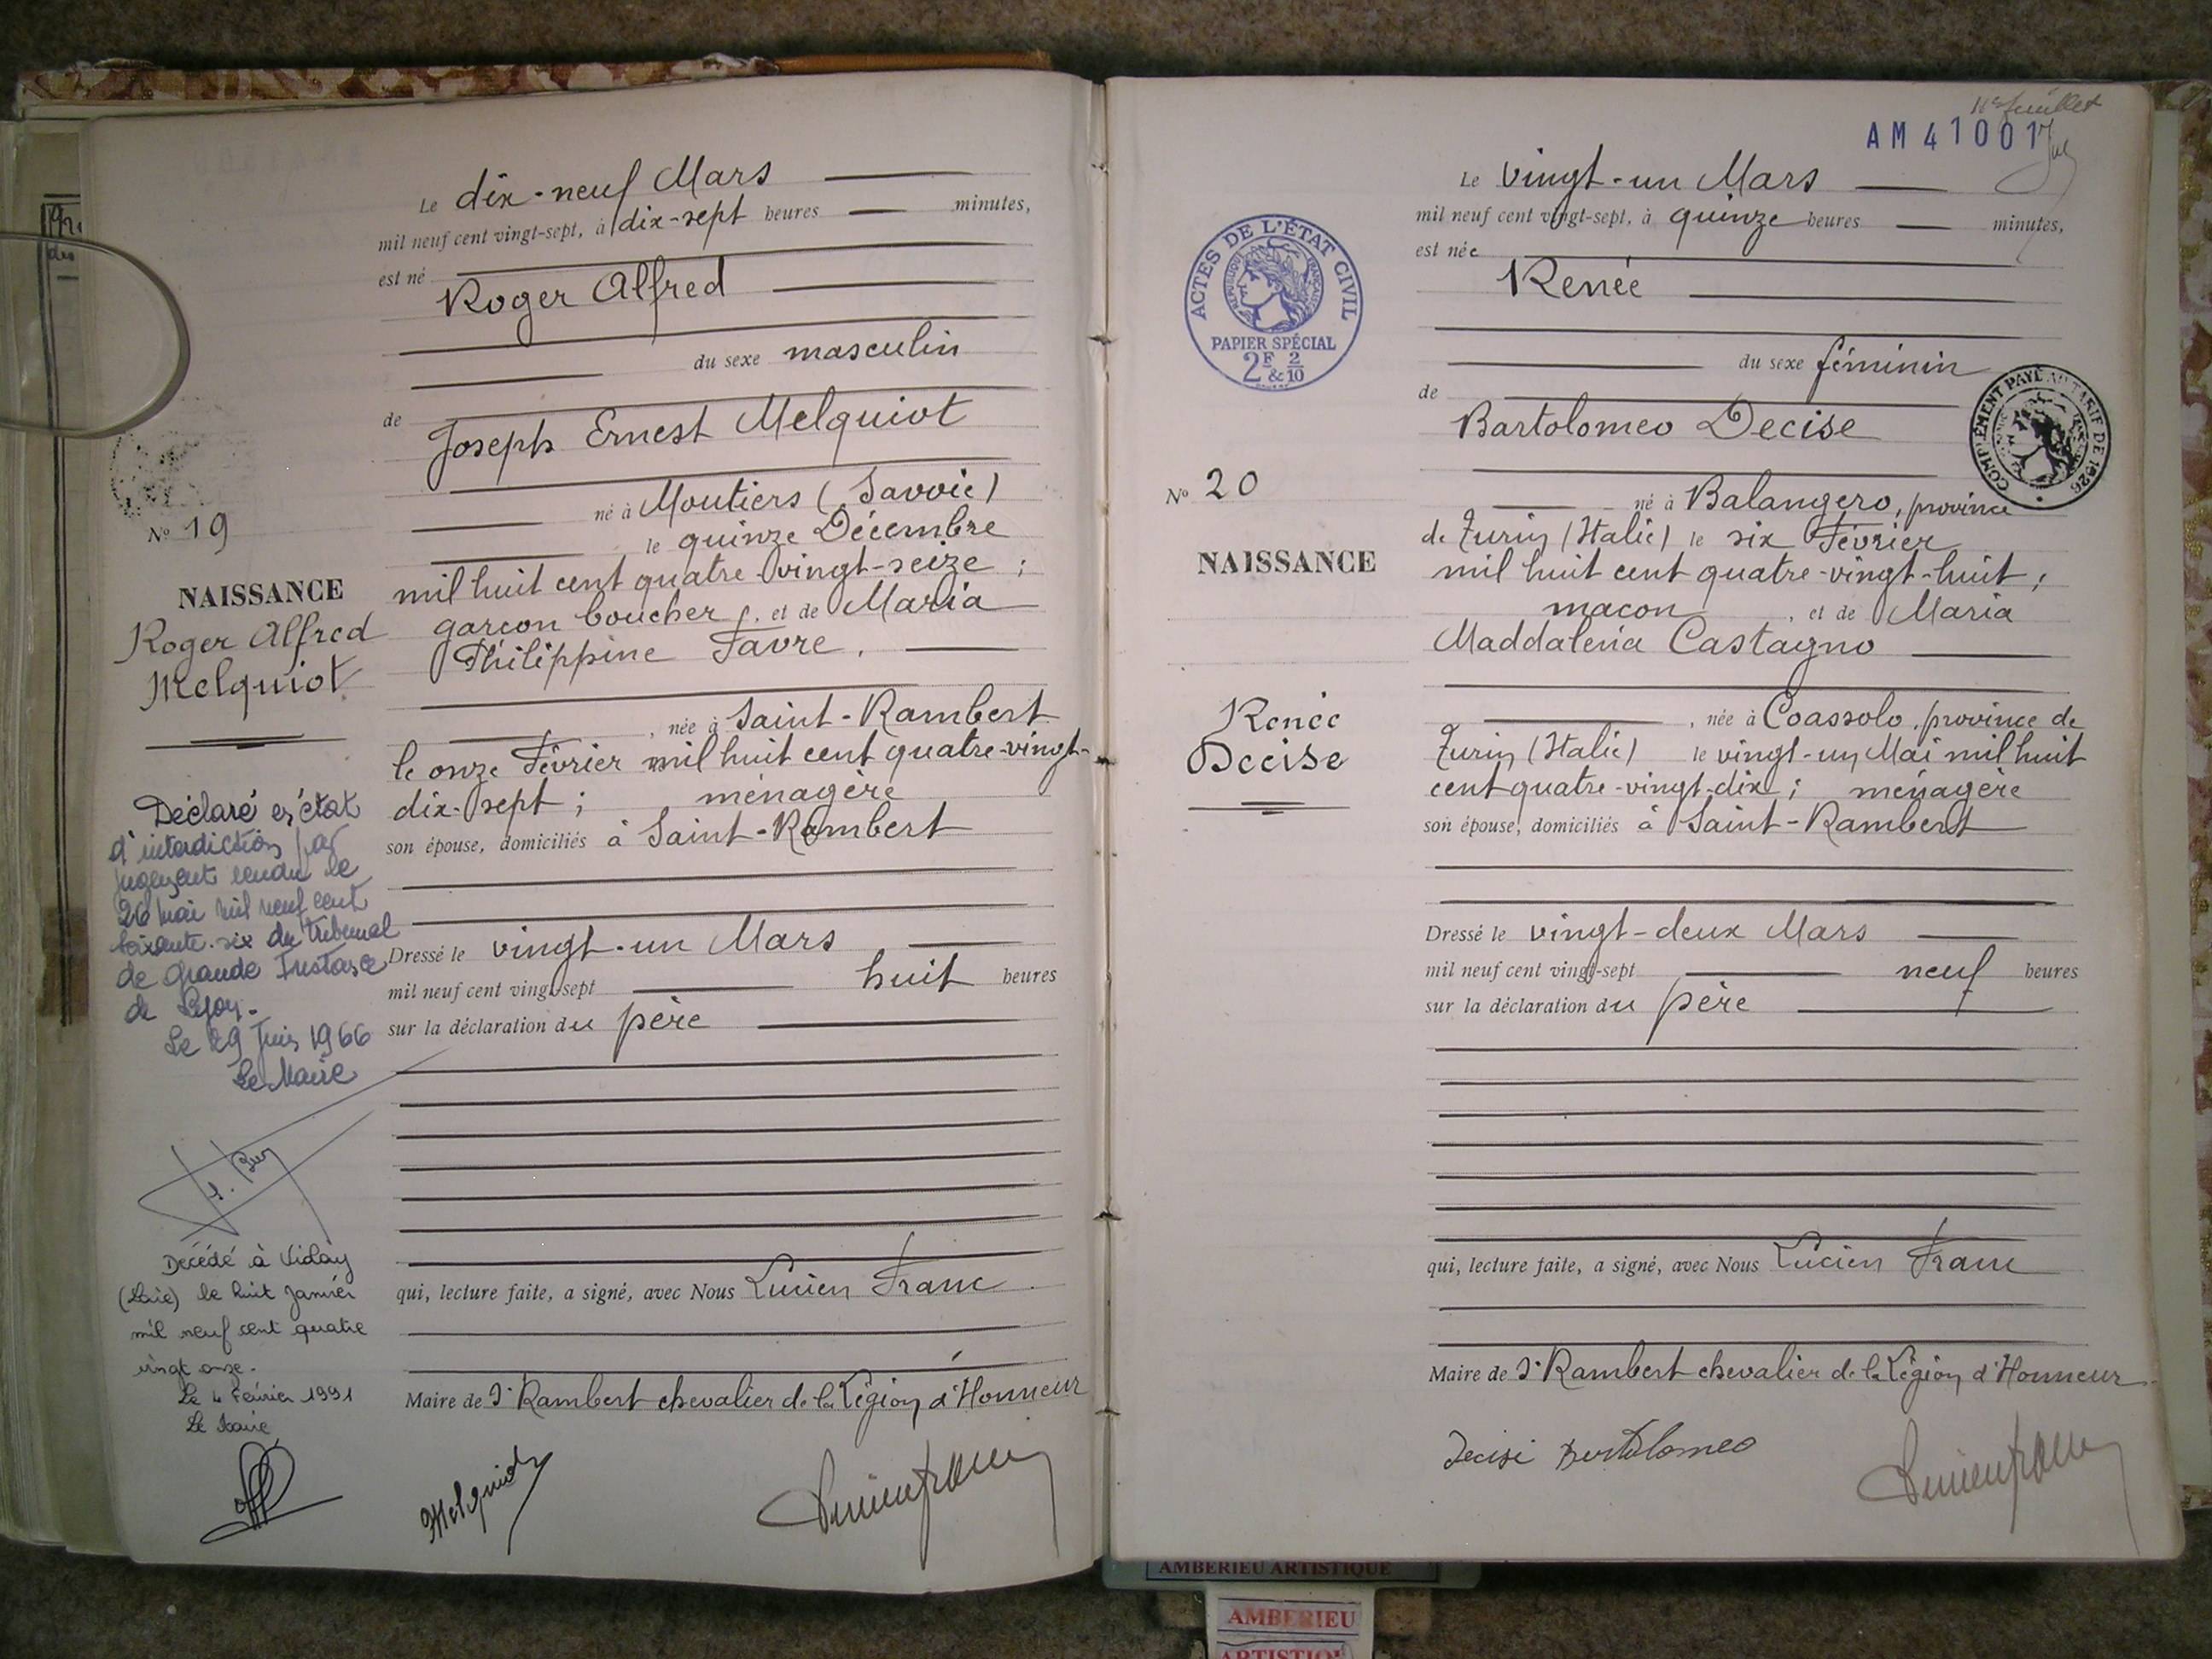 Le dix-neuf Mars
mil neuf cent vingt-sept, à dix-sept heures minutes,
est né
Roger Alfred
du sexe masculin
de
Joseph Ernest Melquiot
né à Moutiers (Savoie)
le quinze Décembre
mil huit cent quatre-vingt-seize ;
garçon boucher, et de Maria
Philippine Favre,
, née à Saint-Rambert
le onze Février mil huit cent quatre-vingt-
dix-sept ; ménagère
son épouse, domiciliés à Saint-Rambert
Dressé le vingt-un Mars
mil neuf cent vingt-sept huit heures
sur la déclaration du père
qui, lecture faite, a signé, avec Nous Lucien Franc
Maire de St Rambert chevalier de la Légion d'Honneur
Melquiot
No 19
NAISSANCE
Roger Alfred
Melquiot
Déclaré en état
d'interdiction par
jugement rendu le
26 mai mil neuf cent
soixante-six du tribunal
de Grande Instance
de Lyon.
Le 29 Juin 1966
Le Maire
Décédé à
(Loire) le huit Janvier
mil neuf cent quatre
vingt onze.
Le 4 Février 1991
Le Maire
11e feuillet
AM 41001
Le vingt-un Mars
mil neuf cent vingt-sept, à quinze heures minutes,
est née
Renée
du sexe féminin
de
Bartolomeo Decise
né à Balangero, province
de Turin (Italie) le six Février
mil huit cent quatre-vingt-huit ;
macon, et de Maria
Maddalena Castagno
, née à Coassolo, province de
Turin (Italie) le vingt-un Mai mil huit
cent quatre-vingt-dix ; ménagère
son épouse, domiciliés à Saint-Rambert
Dressé le vingt-deux Mars
mil neuf cent vingt-sept neuf heures
sur la déclaration du père
qui, lecture faite, a signé, avec Nous Lucien Franc
Maire de St Rambert chevalier de la Légion d'Honneur
Decisi Bartolomeo
ACTES DE L'ÉTAT CIVIL
RÉPUBLIQUE FRANÇAISE
PAPIER SPÉCIAL
2F & 2/10
COMPLÉMENT PAYÉ AU TARIF DE 1926
No 20
NAISSANCE
Renée
Decise
AMBERIEU ARTISTIQUE
AMBERIEU
ARTISTIQUE